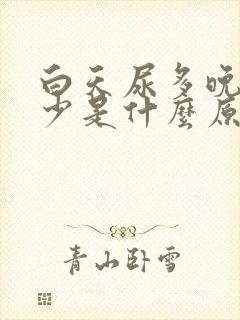 白天尿多晚
少是什麼原
青山卧雪